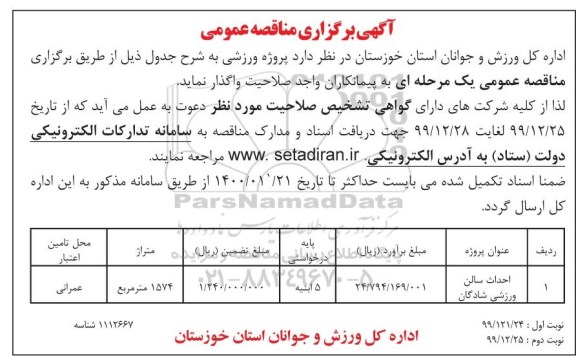 آگهی برگزاری مناقصه عمومی
اداره کل ورزش و جوانان استان خوزستان در نظر دارد پروژه ورزشی به شرح جدول ذیل از طریق برگزاری
مناقصه عمومی یک مرحله ای به پیمانکاران واجد صلاحیت واگذار نماید.
لذا از کلیه شرکت های دارای گواهی تشخیص صلاحیت مورد نظر دعوت به عمل می آید که از تاریخ
۹۹/۱۲/۲۵ لغایت ۹۹/۱۲/۲۸ جهت دریافت اسناد و مدارک مناقصه به سامانه تدارکات الکترونیکی
دولت (ستاد) به آدرس الکترونیکی www. setadiran.ir مراجعه نمایند.
ضمنا اسناد تکمیل شده می بایست حداکثر تا تاریخ ۱۴۰۰/۰۱/۲۱ از طریق سامانه مذکور به این اداره
کل ارسال گردد.
ParsNamadData
۰۲۱-۸۸۳۴۹۶۷۰-۵
ردیف عنوان پروژه مبلغ برآورد (ریال) پایه درخواستی مبلغ تضمین (ریال) متراژ محل تامین اعتبار
۱ احداث سالن ورزشی شادگان ۲۴/۷۹۴/۱۶۹/۰۰۱ ۵ ابنیه ۱/۲۴۰/۰۰۰/۰۰۰ ۱۵۷۴ مترمربع عمرانی
نوبت اول : ۹۹/۱۲۱/۲۴
نوبت دوم : ۹۹/۱۲/۲۵
اداره کل ورزش و جوانان استان خوزستان
۱۱۱۲۶۶۷ شناسه